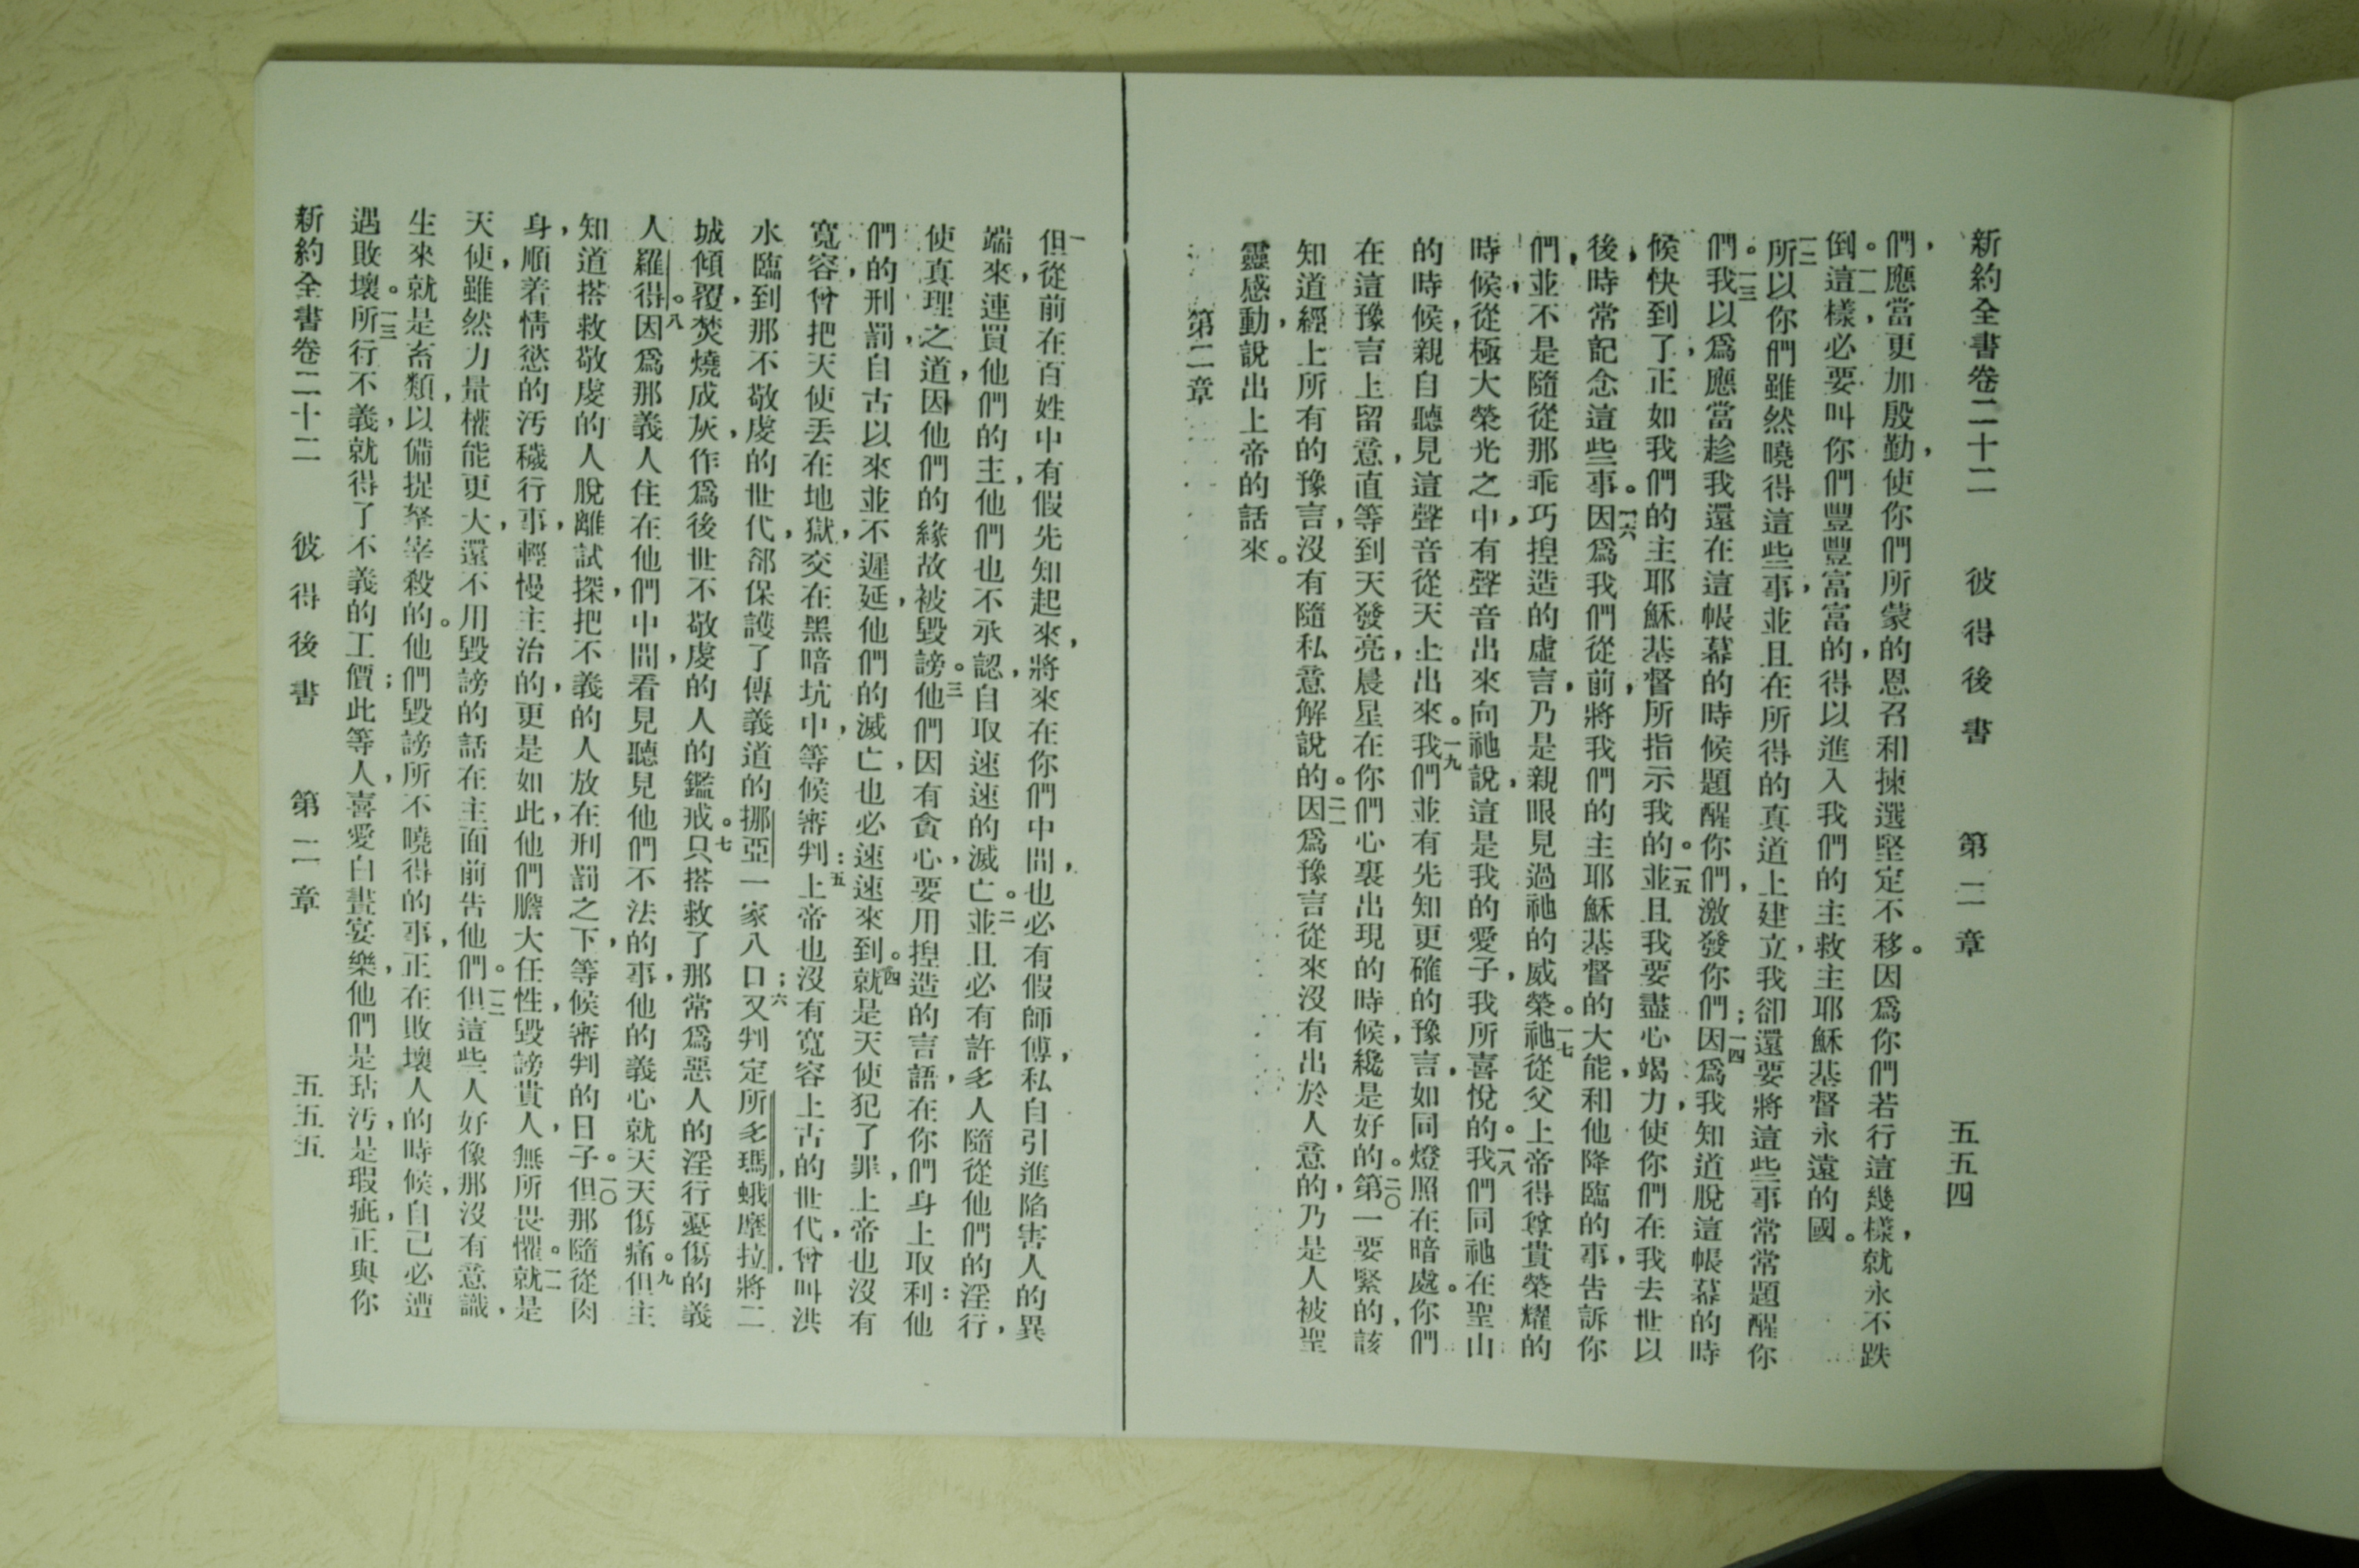 新約全書卷二十二 彼得後書 第二章 五五四
們,應當更加殷勤,使你們所蒙的恩召和揀選堅定不移。因爲你們若行這幾樣,就永不跌
倒。一一這樣,必要叫你們豐豐富富的,得以進入我們的主救主耶穌基督永遠的國。
一二所以你們雖然曉得這些事,並且在所得的真道上建立,我卻還要將這些事常常題醒你
們。一三我以爲應當趁我還在這帳幕的時候題醒你們,激發你們;一四因爲我知道脫這帳幕的時
候快到了,正如我們的主耶穌基督所指示我的。一五並且我要盡心竭力,使你們在我去世以
後,時常記念這些事。一六因爲我們從前,將我們的主耶穌基督的大能,和他降臨的事,告訴你
們,並不是隨從那乖巧揑造的虛言,乃是親眼見過祂的威榮。一七祂從父上帝得尊貴榮耀的
時候,從極大榮光之中,有聲音出來向祂說,這是我的愛子,我所喜悅的。一八我們同祂在聖山
的時候,親自聽見這聲音從天上出來。一九我們並有先知更確的豫言,如同燈照在暗處。你們
在這豫言上留意,直等到天發亮,晨星在你們心裏出現的時候,纔是好的。二〇第一要緊的,該
知道經上所有的豫言,沒有隨私意解說的。二一因爲豫言從來沒有出於人意的,乃是人被聖
靈感動,說出上帝的話來。
第二章
一但從前在百姓中有假先知起來,將來在你們中間,也必有假師傅,私自引進陷害人的異
端來,連買他們的主,他們也不承認,自取速速的滅亡。二並且必有許多人隨從他們的淫行,
使真理之道,因他們的緣故被毀謗。三他們因有貪心,要用揑造的言語,在你們身上取利:他
們的刑罰,自古以來並不遲延,他們的滅亡,也必速速來到。四就是天使犯了罪,上帝也沒有
寬容,曾把天使丟在地獄,交在黑暗坑中,等候審判:五上帝也沒有寬容上古的世代,曾叫洪
水臨到那不敬虔的世代,卻保護了傳義道的挪亞一家八口;六又判定所多瑪,蛾摩拉,將二
城傾覆,焚燒成灰,作爲後世不敬虔的人的鑑戒。七只搭救了那常爲惡人的淫行憂傷的義
人羅得。八因爲那義人住在他們中間,看見聽見他們不法的事,他的義心就天天傷痛。九但主
知道搭救敬虔的人脫離試探,把不義的人放在刑罰之下,等候審判的日子。一〇但那隨從肉
身,順着情慾的汚穢行事,輕慢主治的,更是如此,他們膽大任性,毀謗貴人,無所畏懼。一一就是
天使,雖然力量權能更大,還不用毀謗的話在主面前告他們。一二但這些人好像那沒有意識,
生來就是畜類,以備捉拏宰殺的。他們毀謗所不曉得的事,正在敗壞人的時候,自己必遭
遇敗壞。一三所行不義,就得了不義的工價;此等人,喜愛白晝宴樂,他們是玷汚,是瑕疵,正與你
新約全書卷二十二 彼得後書 第二章 五五五